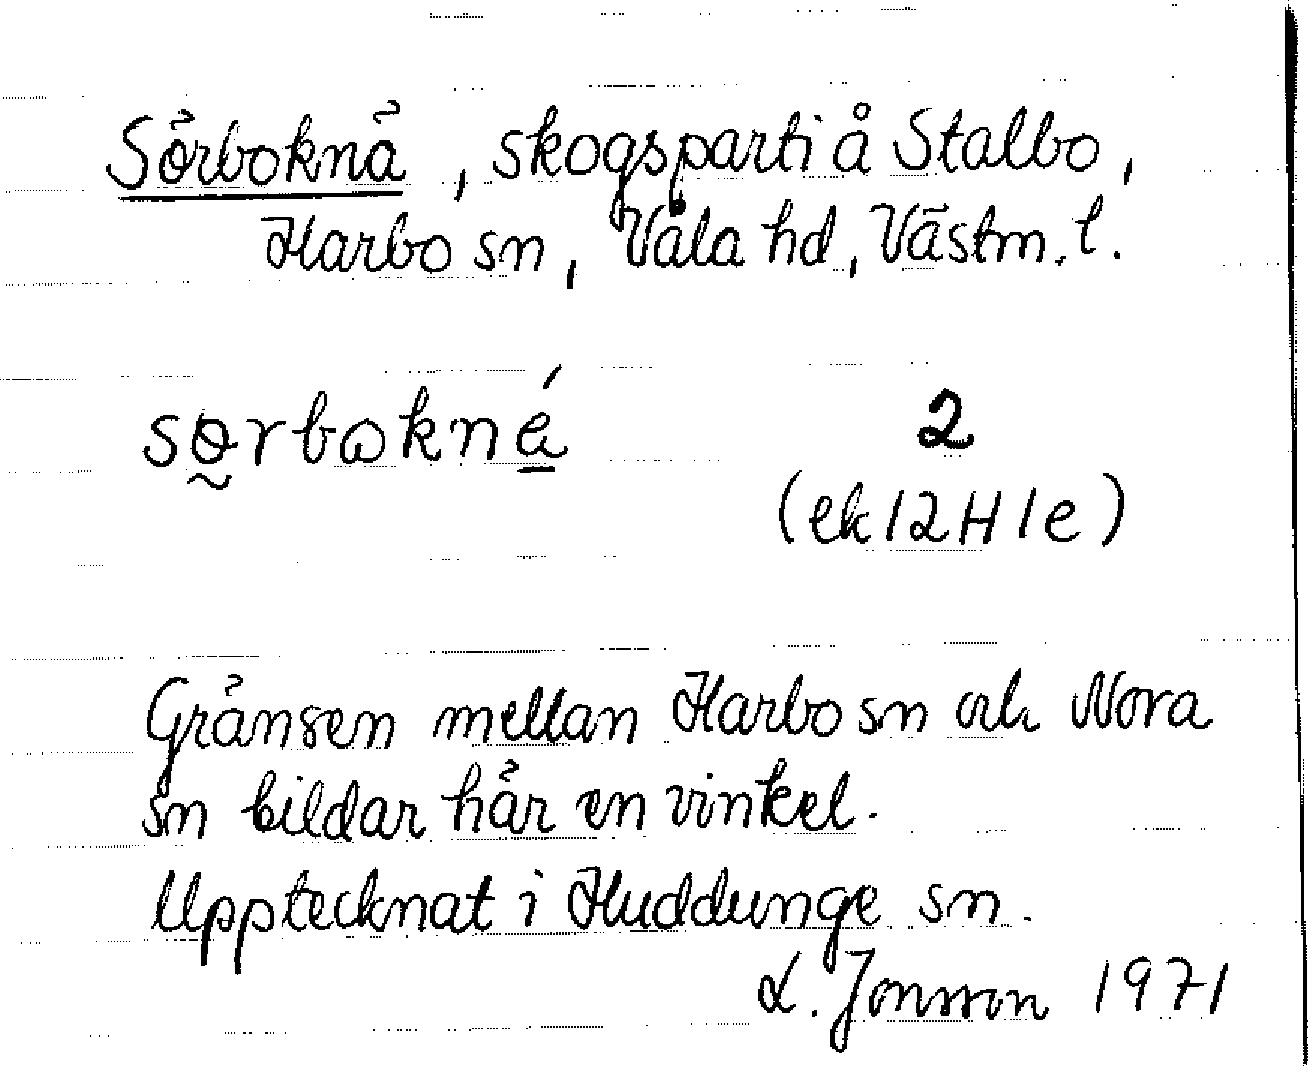 Sörboknä, skogsparti å Stalbo,
Harbo sn, Våla hd, Västm. l.
2
(ek 12H 1e)
Gränsen mellan Harbo sn och Nora
sn bildar här en vinkel.
Upptecknat i Huddunge sn.
L. Jonsson 1971